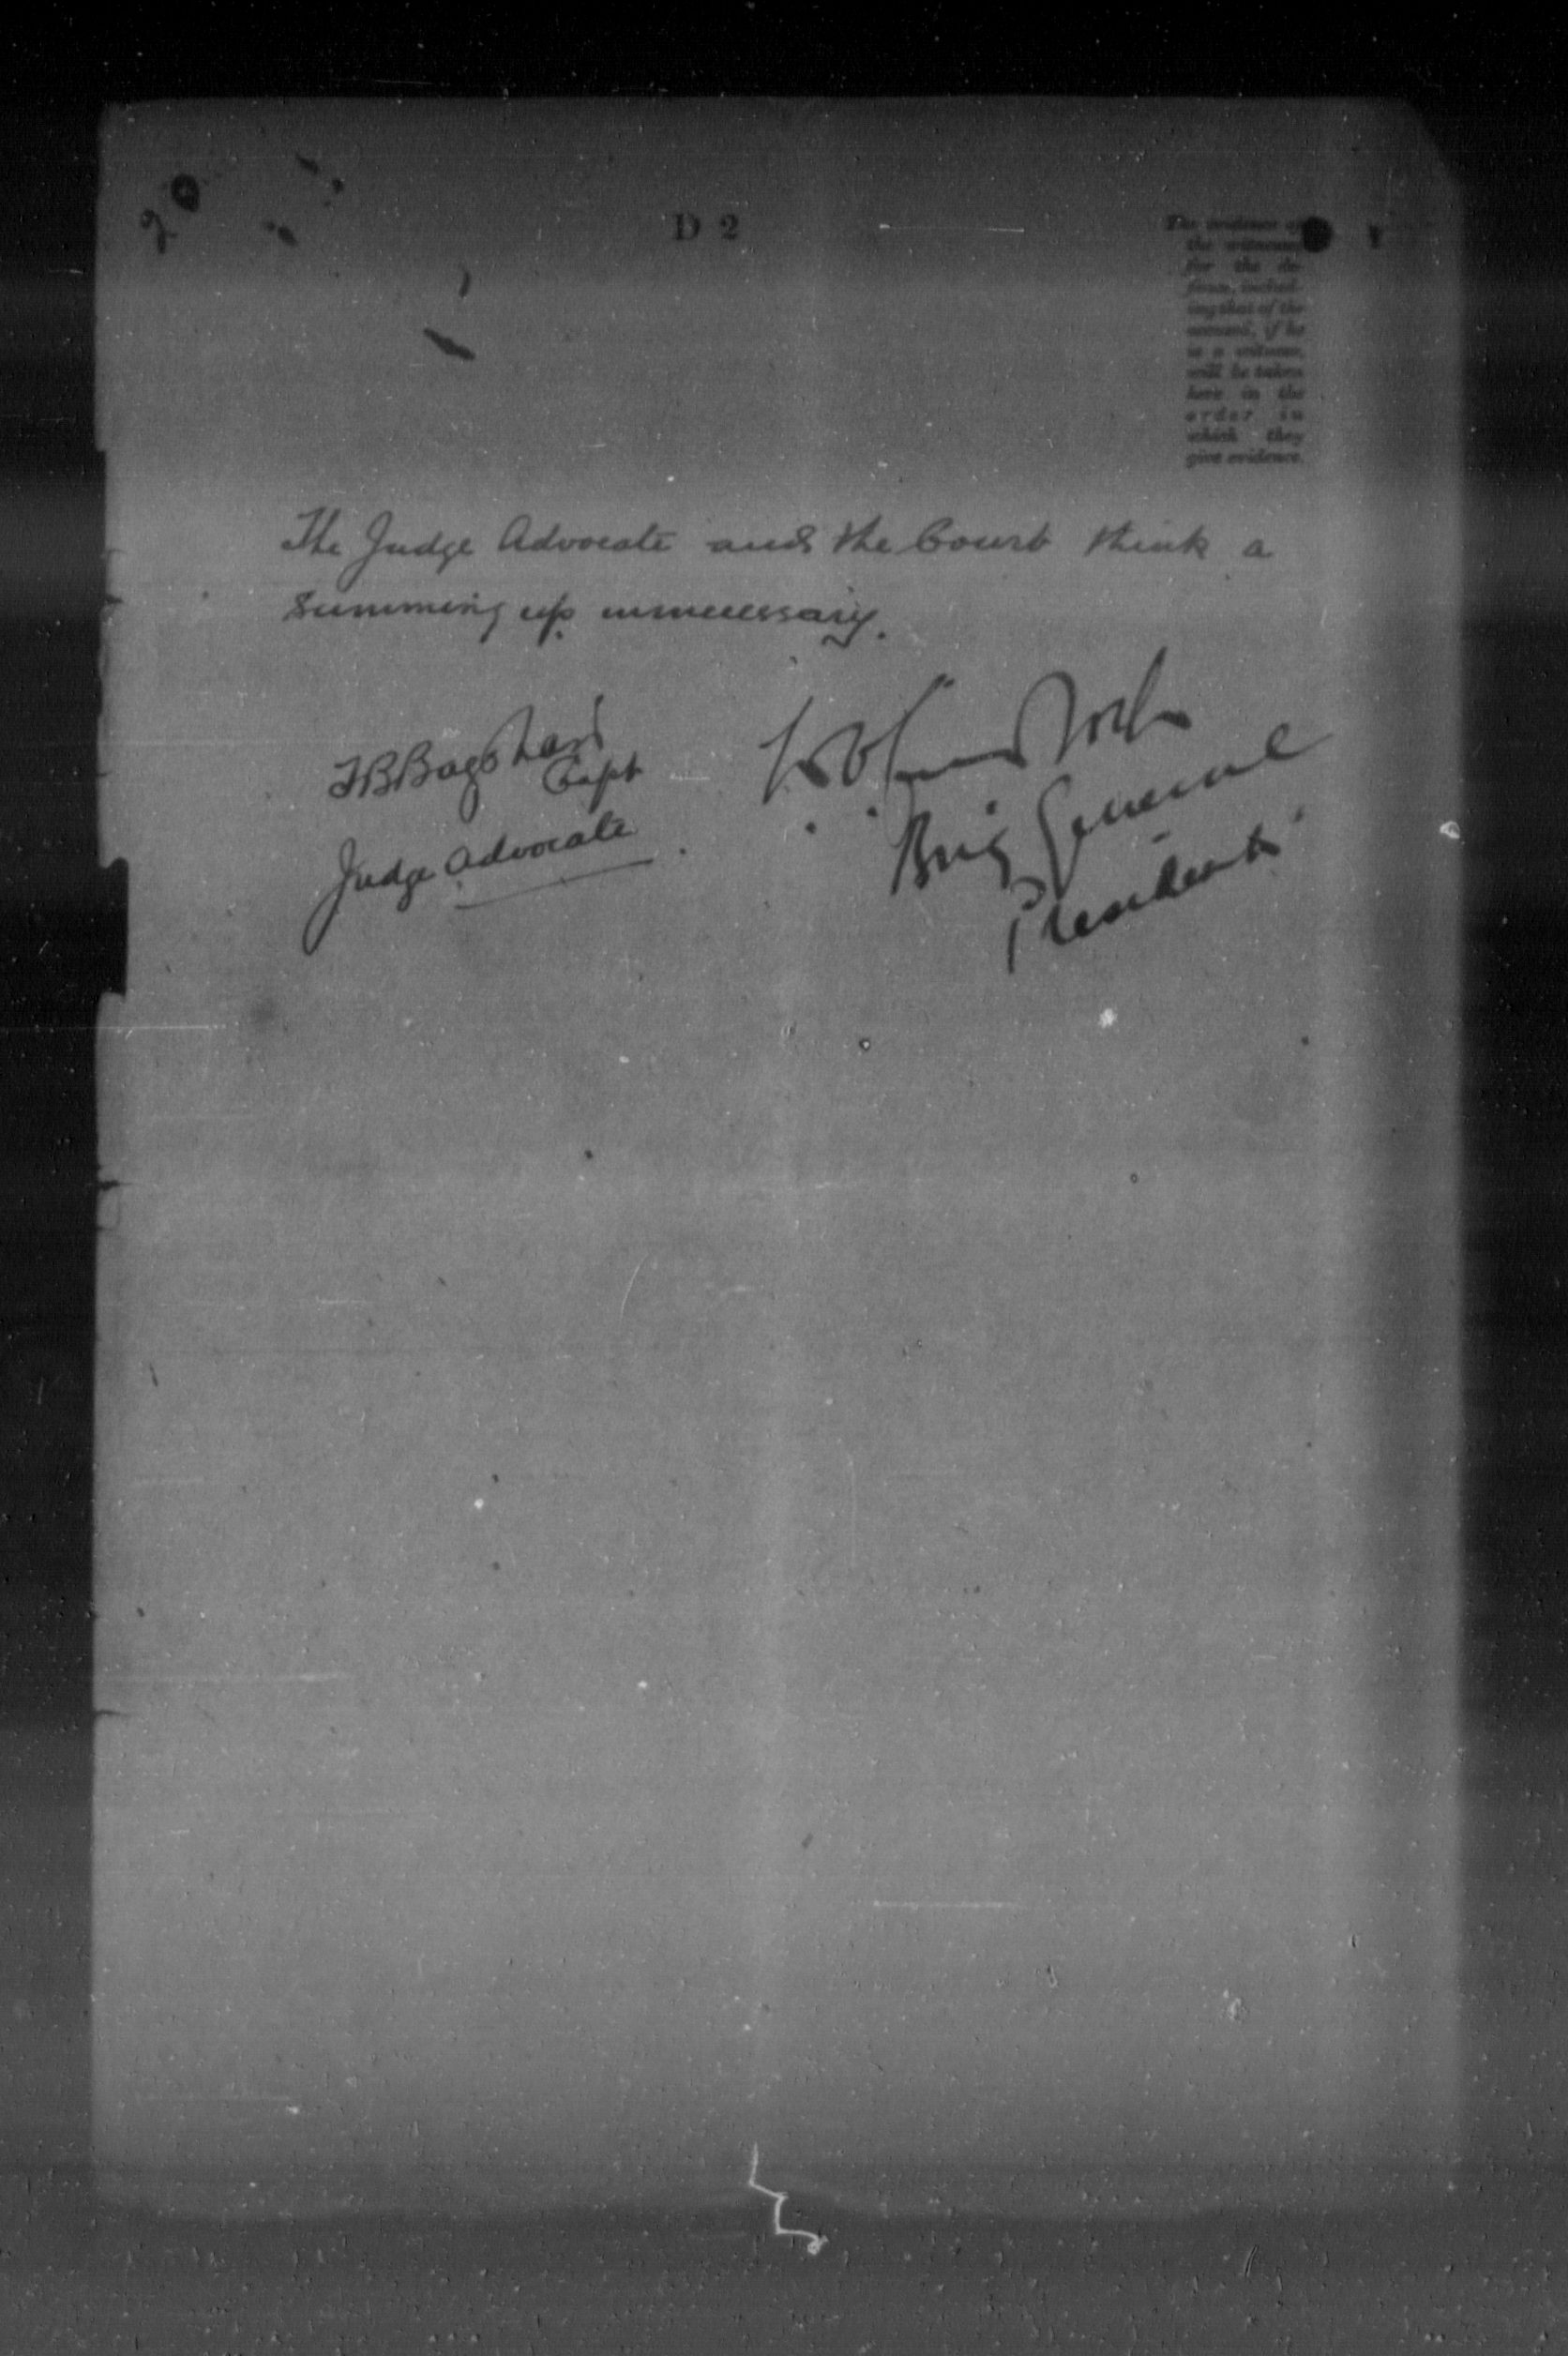 20
D 2
The evidence of
the witnesses
for the de-
fence, includ-
ing that of the
accused, if he
is a witness,
will be taken
here in the
order in
which they
give evidence.
The Judge Advocate and the Court think a
summing up unnecessary.
Bagshaw
Capt
Judge Advocate
Brig General
President